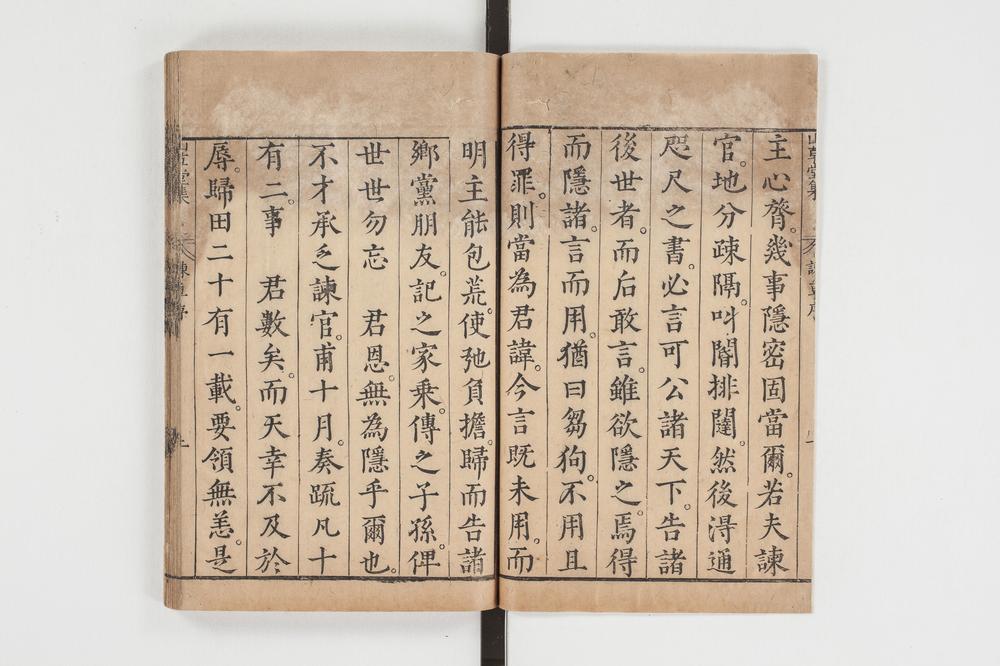 主心膂。幾事隱密固當爾。若夫諫
官。地分疎隔。叫閽排闥。然後淂通
咫尺之書。必言可公諸天下。告諸
後世者。而后敢言。雖欲隱之。焉得
而隱諸。言而用。猶曰芻狗。不用且
得罪。則當為君諱。今言既未用。而
明主能包荒。使弛負擔。歸而告諸
鄉黨朋友。記之家乗。傳之子孫。俾
世世勿忘　君恩。無為隱乎爾也。
不才承乏諫官。甫十月。奏疏凡十
有二事　君數矣。而天幸不及於
辱。歸田二十有一載。要領無恙。是